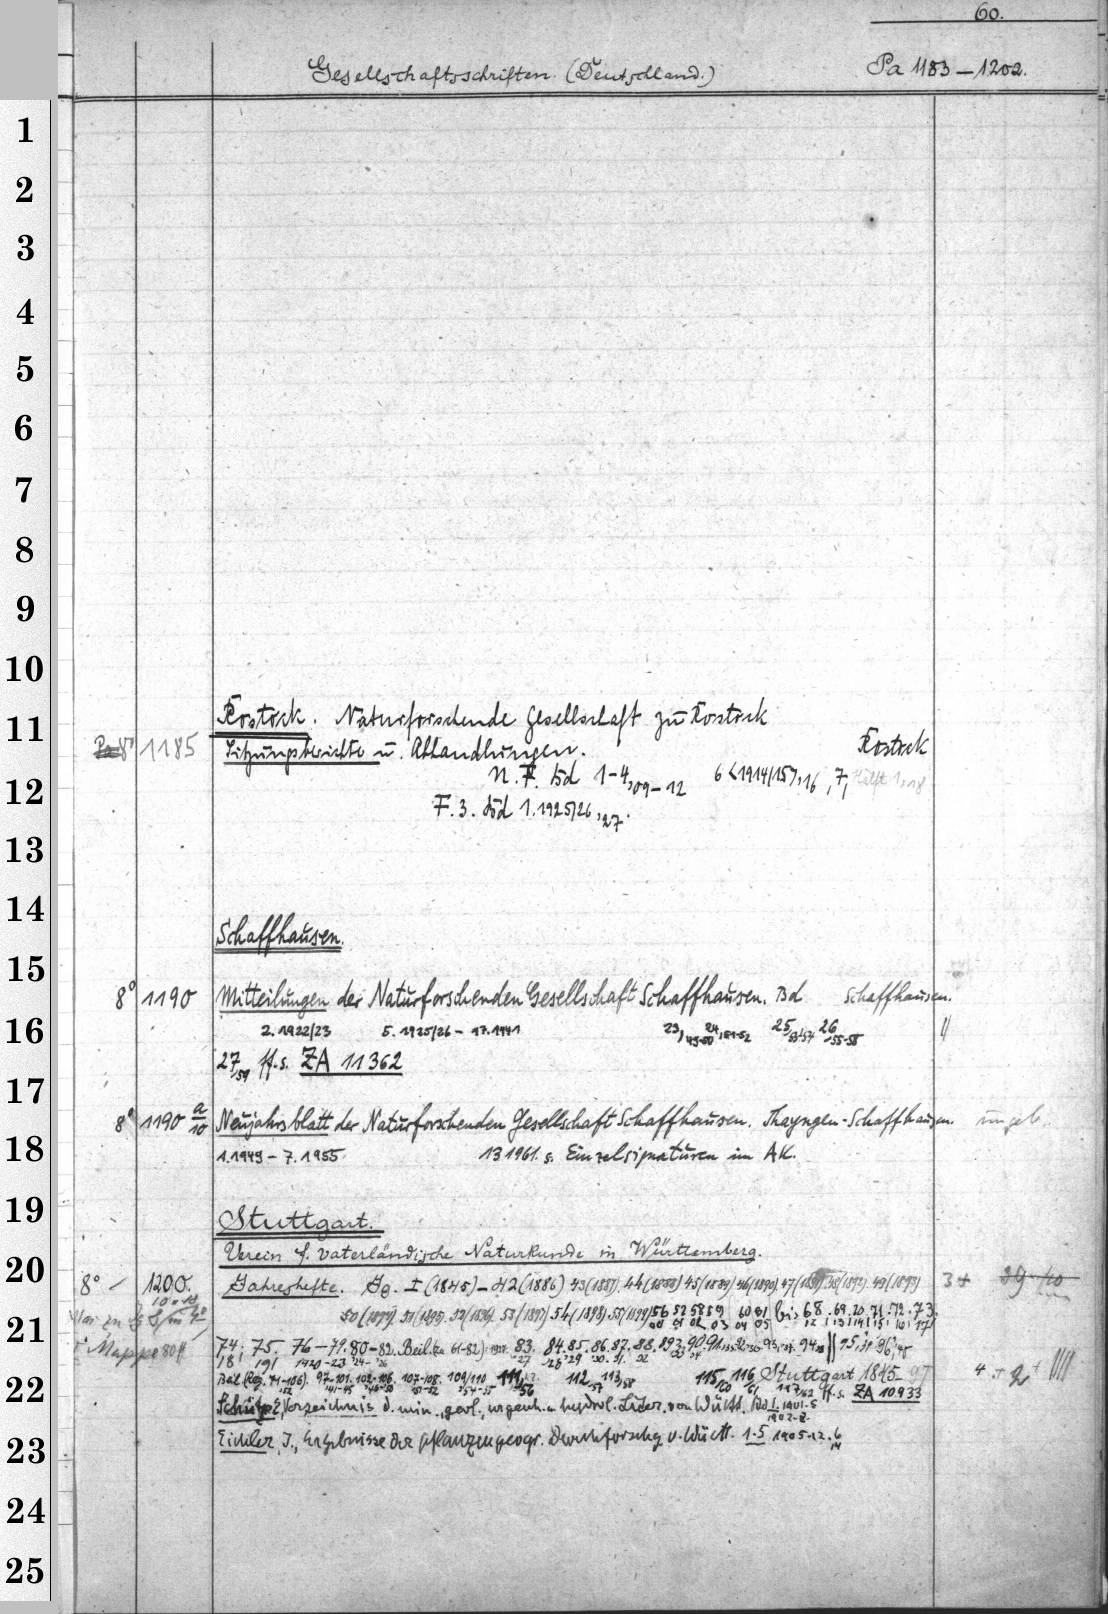 60.
Gesellschaftsschriften. (Deutschland.) Pa 1183 – 1202.
1
2
3
4
5
6
7
8
9
10
Rostock. Naturforschende Gesellschaft zu Rostock
11
8° 1185 Sitzungsberichte u. Abhandlungen. Rostock
N. F. Bd 1-4,09-12 6 <1914/15>,16, 7, Heft 1,18
12
F. 3. Bd 1.1925/26,27.
13
14
Schaffhausen.
15
8° 1190 Mitteilungen der Naturforschenden Gesellschaft Schaffhausen. Bd Schaffhausen.
16
2. 1922/23 5. 1925/26 – 17.1941 23,49-50 24,51-52 25,53-54 26,55-58
27,59 ff. s. ZA 11362
17
8° 1190 a/10 Neujahrsblatt der Naturforschenden Gesellschaft Schaffhausen. Thayngen-Schaffhausen. ungeb.
18
1.1949 – 7.1955 13 1961. s. Einzelsignaturen im AK.
19
Stuttgart.
Verein f. vaterländische Naturkunde in Württemberg.
20
8° 1200. Jahreshefte. Jg. I (1845) – 42 (1886) 43 (1887) 44 (1888) 45 (1889) 46 (1890) 47 (1891) 48 (1892) 49 (1893)
50 (1894) 51 (1895) 52 (1896) 53 (1897) 54 (1898) 55 (1899) 56 57 58 59 60 61 bis 68. 69. 70. 71. 72. 73.
21
Mappe
74; 75. 76 – 79. 80 – 82. Beil. (zu 61-82) 83. 84. 85. 86. 87. 88. 89
Beil. (Reg. 71-106). 97-101. 102-106. 107-108. 109/110 111, 112, 113, 115, 116, Stuttgart 1845-
22
117/62 ff. s. ZA 10933
Verzeichnis d. min., geol., urgesch. u. hydrol. Liter. von Württ. Bd 1. 1901-5
23
Eichler, J., Ergebnisse der pflanzengeogr. Durchforschg v. Württ. 1-5 1905-12.
24
25